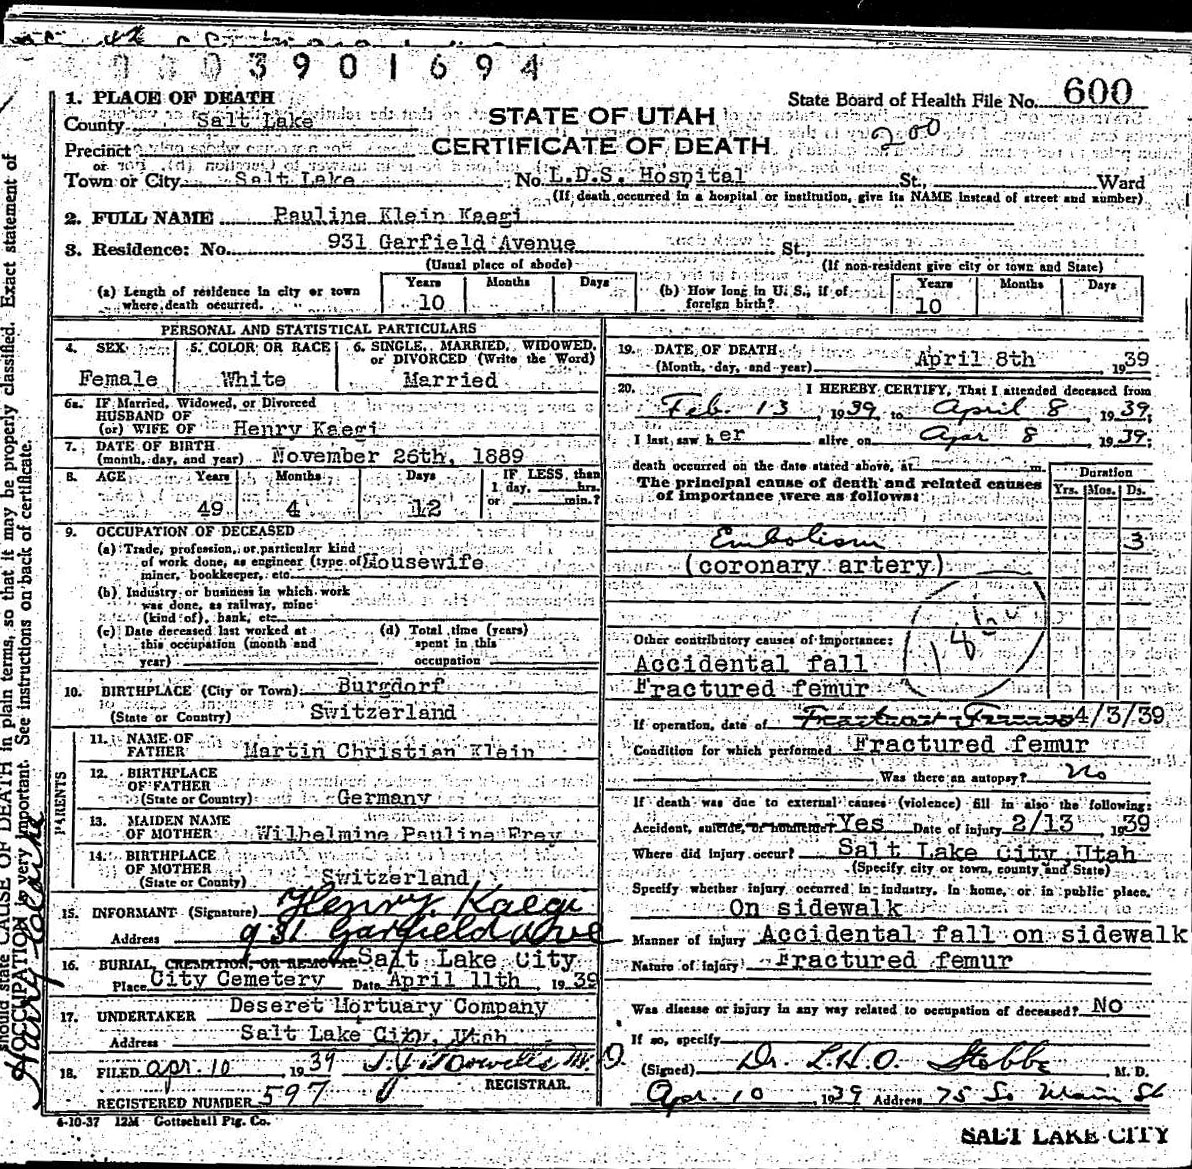 3901694
State Board of Health File No. 600
STATE OF UTAH
CERTIFICATE OF DEATH
200
1. PLACE OF DEATH
County Salt Lake
Precinct
or
Town or City Salt Lake No. L.D.S. Hospital St., Ward
(If death occurred in a hospital or institution, give its NAME instead of street and number)
2. FULL NAME Pauline Klein Kaegi
3. Residence: No. 931 Garfield Avenue St.,
(Usual place of abode) (If non-resident give city or town and State)
(a) Length of residence in city or town where death occurred. Years 10 Months Days
(b) How long in U. S., if of foreign birth? Years 10 Months Days
PERSONAL AND STATISTICAL PARTICULARS
4. SEX Female
5. COLOR OR RACE White
6. SINGLE, MARRIED, WIDOWED, or DIVORCED (Write the Word) Married
6a. IF Married, Widowed, or Divorced
HUSBAND OF
(or) WIFE OF Henry Kaegi
7. DATE OF BIRTH
(month, day, and year) November 26th, 1889
8. AGE Years 49 Months 4 Days 12 IF LESS than 1 day, hrs. or min.?
9. OCCUPATION OF DECEASED
(a) Trade, profession, or particular kind
of work done, as engineer (type of Housewife
miner, bookkeeper, etc.
(b) Industry or business in which work
was done, as railway, mine
(kind of), bank, etc.
(c) Date deceased last worked at this occupation (month and year)
(d) Total time (years) spent in this occupation
10. BIRTHPLACE (City or Town) Burgdorf
(State or Country) Switzerland
PARENTS
11. NAME OF FATHER Martin Christian Klein
12. BIRTHPLACE OF FATHER
(State or Country) Germany
13. MAIDEN NAME OF MOTHER Wilhelmine Pauline Frey
14. BIRTHPLACE OF MOTHER
(State or Country) Switzerland
15. INFORMANT (Signature) Henry Kaegi
Address 931 Garfield Ave
16. BURIAL, CREMATION, OR REMOVAL Salt Lake City
Place City Cemetery Date April 11th, 1939
17. UNDERTAKER Deseret Mortuary Company
Address Salt Lake City, Utah
18. FILED Apr. 10 1939
REGISTRAR.
REGISTERED NUMBER 597
6-10-37 12M Gottschall Ptg. Co.
19. DATE OF DEATH
(Month, day, and year) April 8th 1939
20. I HEREBY CERTIFY, That I attended deceased from
Feb. 13, 1939, to April 8 1939;
I last saw her alive on Apr 8 1939;
death occurred on the date stated above, at m.
Duration
The principal cause of death and related causes
of importance were as follows: Yrs. Mos. Ds.
Embolism 3
(coronary artery)
Other contributory causes of importance:
Accidental fall
Fractured femur
If operation, date of 4/3/39
Condition for which performed Fractured femur
Was there an autopsy? No
If death was due to external causes (violence) fill in also the following:
Accident, suicide, or homicide? Yes Date of injury 2/13 1939
Where did injury occur? Salt Lake City, Utah
(Specify city or town, county and State)
Specify whether injury occurred in industry, in home, or in public place.
On sidewalk
Manner of injury Accidental fall on sidewalk
Nature of injury Fractured femur
Was disease or injury in any way related to occupation of deceased? No
If so, specify
(Signed) Dr. L.H.O. Stobbe M. D.
Apr. 10, 1939 Address 75 So Main St
SALT LAKE CITY
should state CAUSE OF DEATH in plain terms, so that it may be properly classified. Exact statement of
OCCUPATION is very important. See instructions on back of certificate.